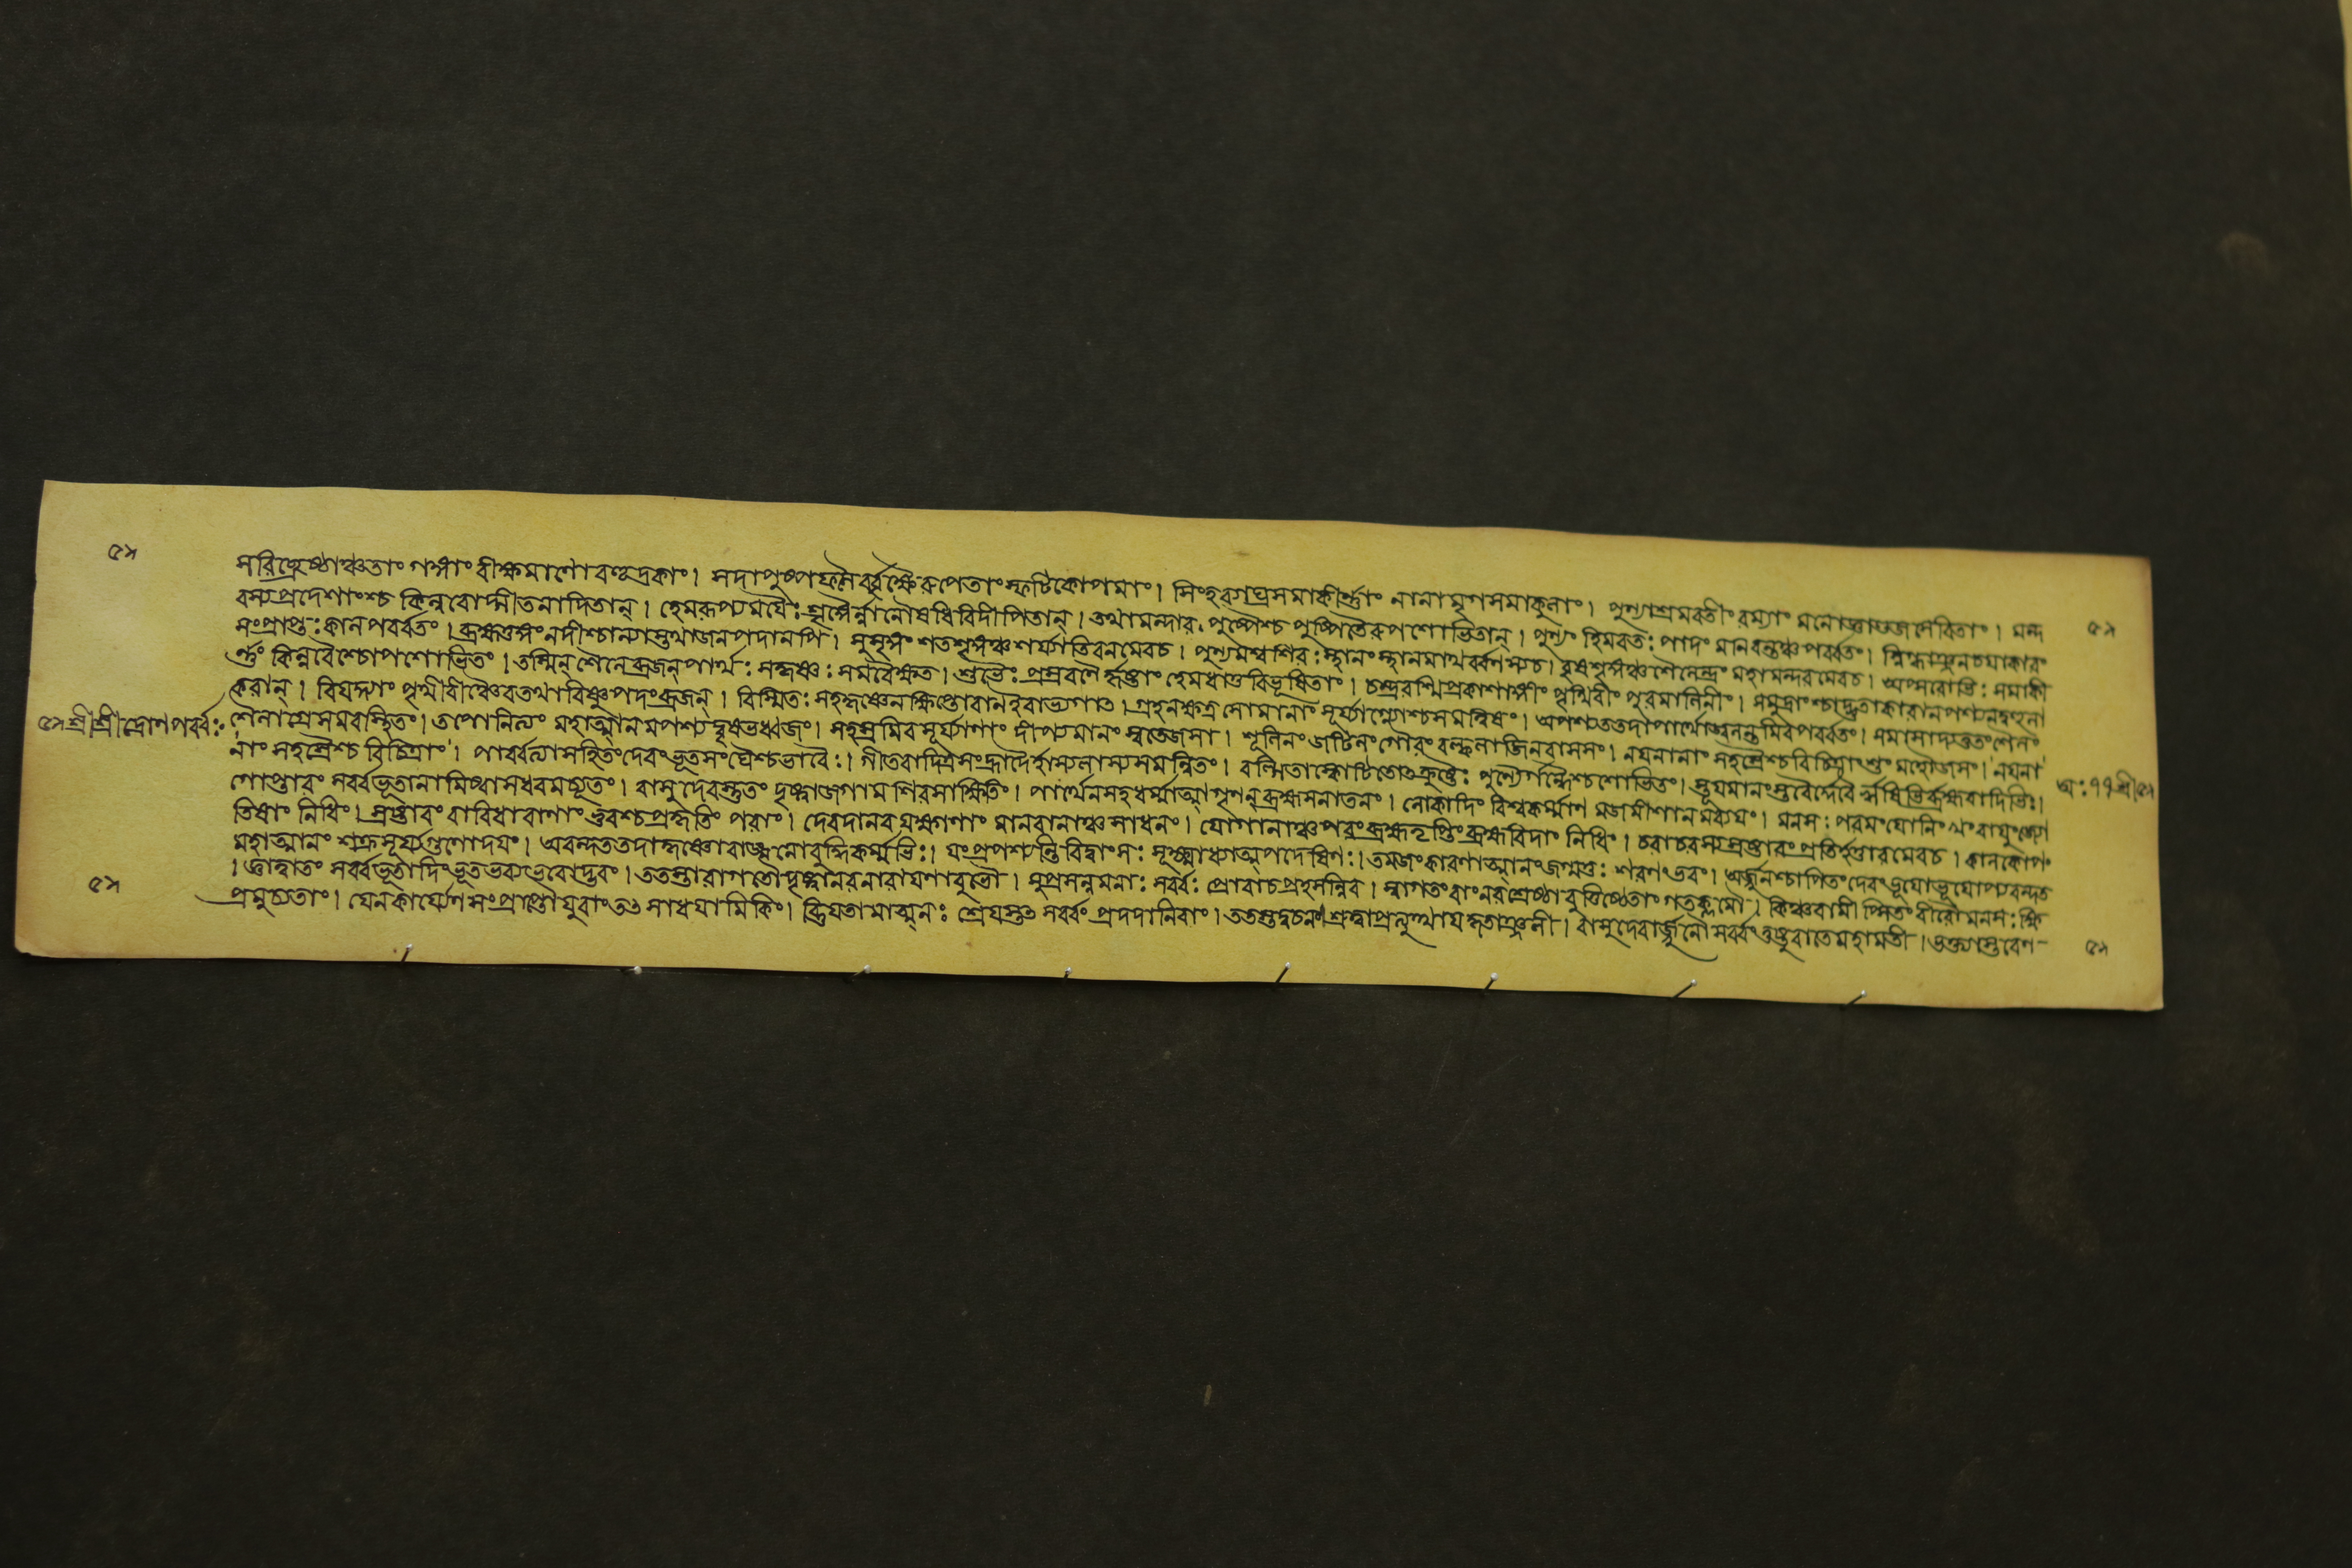 ৫৯
সরিচ্ছ্রেষ্ঠাঞ্চতাং গঙ্গাং বীক্ষমাণোবহূদকাং। সদাপুষ্পফলৈর্বৃক্ষৈরুপেতাংস্ফটিকোপমাং। সিংহব্যাঘ্রসমাকীর্ণাং নানামৃগসমাকুলাং। পুণ্যাশ্রমবতীংরম্যাং মনোজ্ঞাণ্ডজসেবিতাং। মন্দ
বস্যপ্রদেশাংশ্চ কিন্নরোদ্গীতনাদিতান্। হেমরূপ্যময়ৈঃশৃঙ্গৈর্ন্নানৌষধিবিদীপিতান্। তথামন্দারপুষ্পৈশ্চ পুষ্পিতৈরুপশোভিতান্। পুণ্যং হিমবতঃ পাদং মানবন্তঞ্চপর্ব্বতং। স্নিগ্ধাঞ্জনচয়াকারং
৫৯
সংপ্রাপ্তঃকালপর্ব্বতং। ব্রহ্মতুঙ্গংনদীশ্চান্যাস্তথাজনপদানপি। সুসৃঙ্গং শতশৃঙ্গঞ্চশর্য্যাতিবনমেবচ। পুণ্যমশ্বশিরঃস্থানংস্থানমাথর্ব্বণস্যচ। বৃষশৃঙ্গঞ্চশৈলেন্দ্রং মহামন্দরমেবচ। অপ্সরোভিঃ সমাকী
র্ণং কিন্নরৈশ্চোপশোভিতং। তস্মিন্ শৈলেব্রজন্পার্থঃ সকৃষ্ণঃ সমবৈক্ষত। শুভৈঃ প্রস্রবণৈর্জ্জুষ্টাং হেমধাতুবিভূষিতাং। চন্দ্ররশ্মিপ্রকাশাঙ্গীং পৃথিবীং পুরমালিনীং। সমুদ্রাংশ্চাদ্ভুতাকারানপশ্যদ্বহুলা
করান্। বিয়দ্দ্যাং পৃথিবীঞ্চৈবতথাবিষ্ণুপদংব্রজন্। বিস্মিতঃ সহকৃষ্ণেনক্ষিপ্তোবাণইবাভ্যগাৎ। গ্রহনক্ষত্রসোমানাং সূর্য্যাগ্ন্যোশ্চসমত্বিষং। অপশ্যততদাপার্থোজ্বলন্তমিবপর্ব্বতং। সমাসাদ্যতুতংশৈলং
৫৯ শ্রীশ্রীদ্রোণপর্ব্বঃ
শৈলাগ্রেসমবস্থিতং। তপোনিত্যং মহাত্মানমপশ্যদ্বৃষভধ্বজং। সহস্রমিবসূর্য্যাণাং দীপ্যমানং স্বতেজসা। শূলিনংজটিলংগৌরংবল্কলাজিনবাসসং। নয়নানাং সহস্রৈশ্চবিচিত্রাংশুং মহৌজসং। নয়না
নাং সহস্রৈশ্চ বিচিত্রাং। পার্ব্বত্যাসহিতংদেবংভূতসংঘৈশ্চভাবৈঃ। গীতবাদিত্রসংহ্রাদৈর্হাস্যলাস্যসমন্বিতং। বল্গিতাস্ফোটিতোৎক্রুষ্টৈঃ পুণ্যৈর্গন্ধৈশ্চশোভিতং। স্তূয়মানংস্তবৈর্দ্দেবৈর্ঋষিভির্ব্রহ্মবাদিভিঃ।
গোপ্তারং সর্ব্বভূতানামিষ্বাসধরমচ্যুতং। বাসুদেবস্তুতং দৃষ্ট্বাজগাম শিরসাক্ষিতিং। পার্থেনসহধর্ম্মাত্মাগৃণন্ব্রহ্মসনাতনং। লোকাদিং বিশ্বকর্ম্মাণমজমীশানমব্যয়ং। মনসঃ পরমংযোনিং খংবায়ুংজ্যো
অঃ ৭৭ শ্রী। ৫৯
তিষাং নিধিং। স্রষ্টারং বারিধারাণাং ভুবশ্চপ্রকৃতিং পরাং। দেবদানবযক্ষাণাং মানবানাঞ্চসাধনং। যোগানাঞ্চপরংব্রহ্মতৃপ্তিংব্রহ্মবিদাং নিধিং। চরাচরস্যস্রষ্টারংপ্রতিহর্ত্তারমেবচ। কালকোপং
মহাত্মানং শক্রসূর্য্যগুণোদয়ং। অবন্দততদাকৃষ্ণোবাঙ্মনোবুদ্ধিকর্ম্মভিঃ। যংপ্রপশ্যন্তিবিদ্বাংসঃ সূক্ষ্মাধ্যাত্মপদৈষিণঃ। তমজংকারণাত্মানংজগ্মতুঃ শরণংভবং। অর্জ্জুনশ্চাপিতংদেবংভূয়োভূয়োপ্যবন্দত
। জ্ঞাত্বাতং সর্ব্বভূতাদিংভূতভব্যভবোদ্ভবং। ততস্তাবাগতৌদৃষ্ট্বানরনারায়ণাবুভৌ। সুপ্রসন্নমনাঃ সর্ব্বঃ প্রোবাচপ্রহসন্নিব। স্বাগতংবাংনরশ্রেষ্ঠাবুত্তিষ্ঠেতাংগতক্লমৌ। কিঞ্চবামীপ্সিতংবীরৌমনসঃ ক্ষি
৫৯
প্রমুচ্যতাং। যেনকার্য্যেণসংপ্রাপ্তৌযুবাংতৎসাধয়ামিকিং। ব্রিয়তামাত্মনঃ শ্রেয়স্তৎসর্ব্বংপ্রদদানিবাং। ততস্তদ্বচনংশ্রুত্বাপ্রত্যুত্থায়কৃতাঞ্জলী। বাসুদেবার্জ্জুনৌসর্ব্বংতুষ্টুবাতেমহামতী। ভক্ত্যাস্তবেন
৫৯